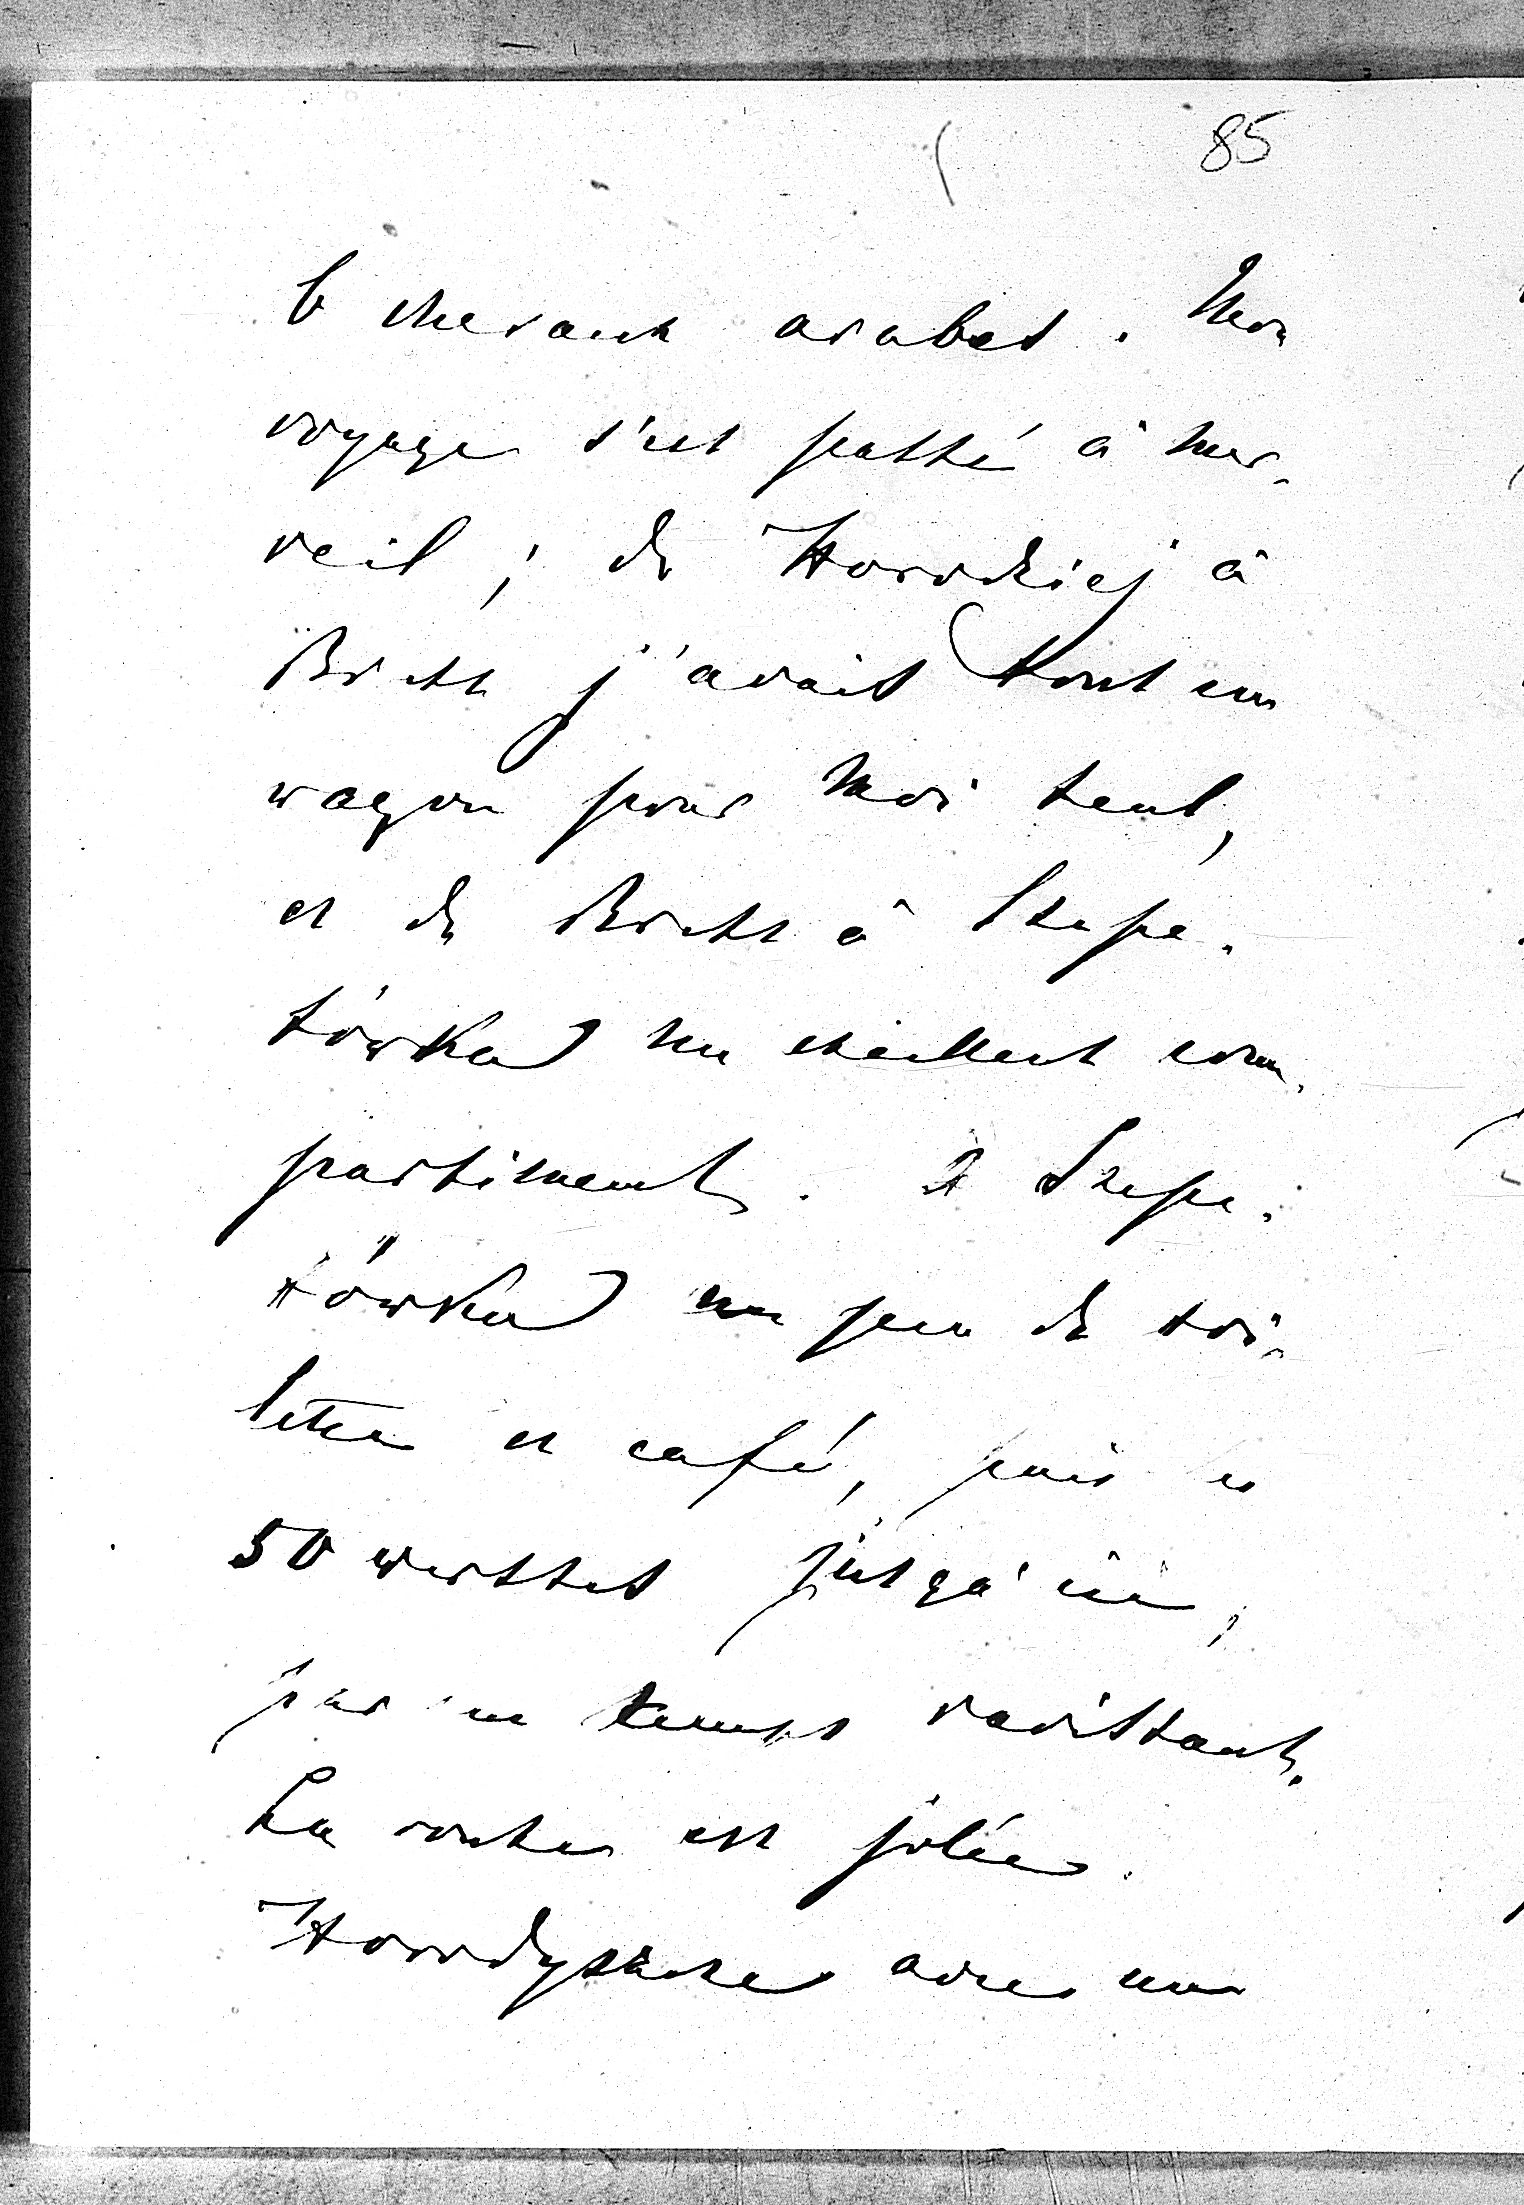 85
6 chevaux arabes. Mon
voyage s'est passé à mer-
veil; de Horodziej à
Brest j'avais tout un
wagon pour moi seul,
et de Brest à Szepe-
tówka un excellent com-
partiment. A Szepe-
tówka un peu de toi-
lette et café, puis
50 werstes jusqà ici,
par un temps ravissant.
La route est jolie.
avec un